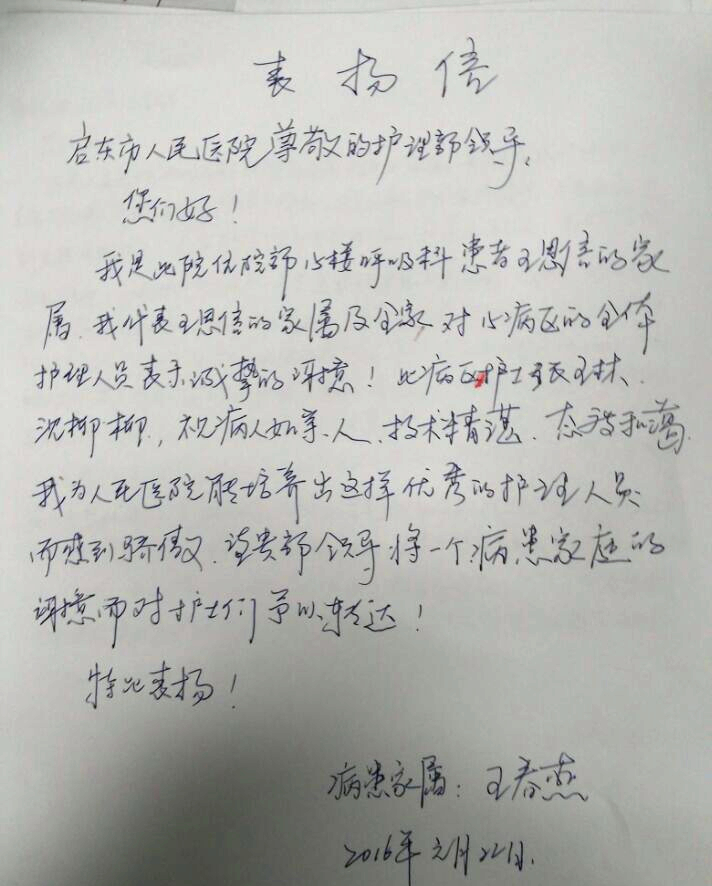 表扬信
启东市人民医院尊敬的护理部领导,
您们好!
我是此院住院部15楼呼吸科患者王恩信的家
属,我代表王恩信的家属及全家对15病区的全体
护理人员表示诚挚的谢意!此病区护士张玉林、
沈柳柳,视病人如亲人、技术精湛、态度和蔼,
我为人民医院能培养出这样优秀的护理人员
而感到骄傲,请贵部领导将一个病患家庭的
谢意而对护士们予以转达!
特此表扬!
病患家属:王春燕
2016年元月22日.